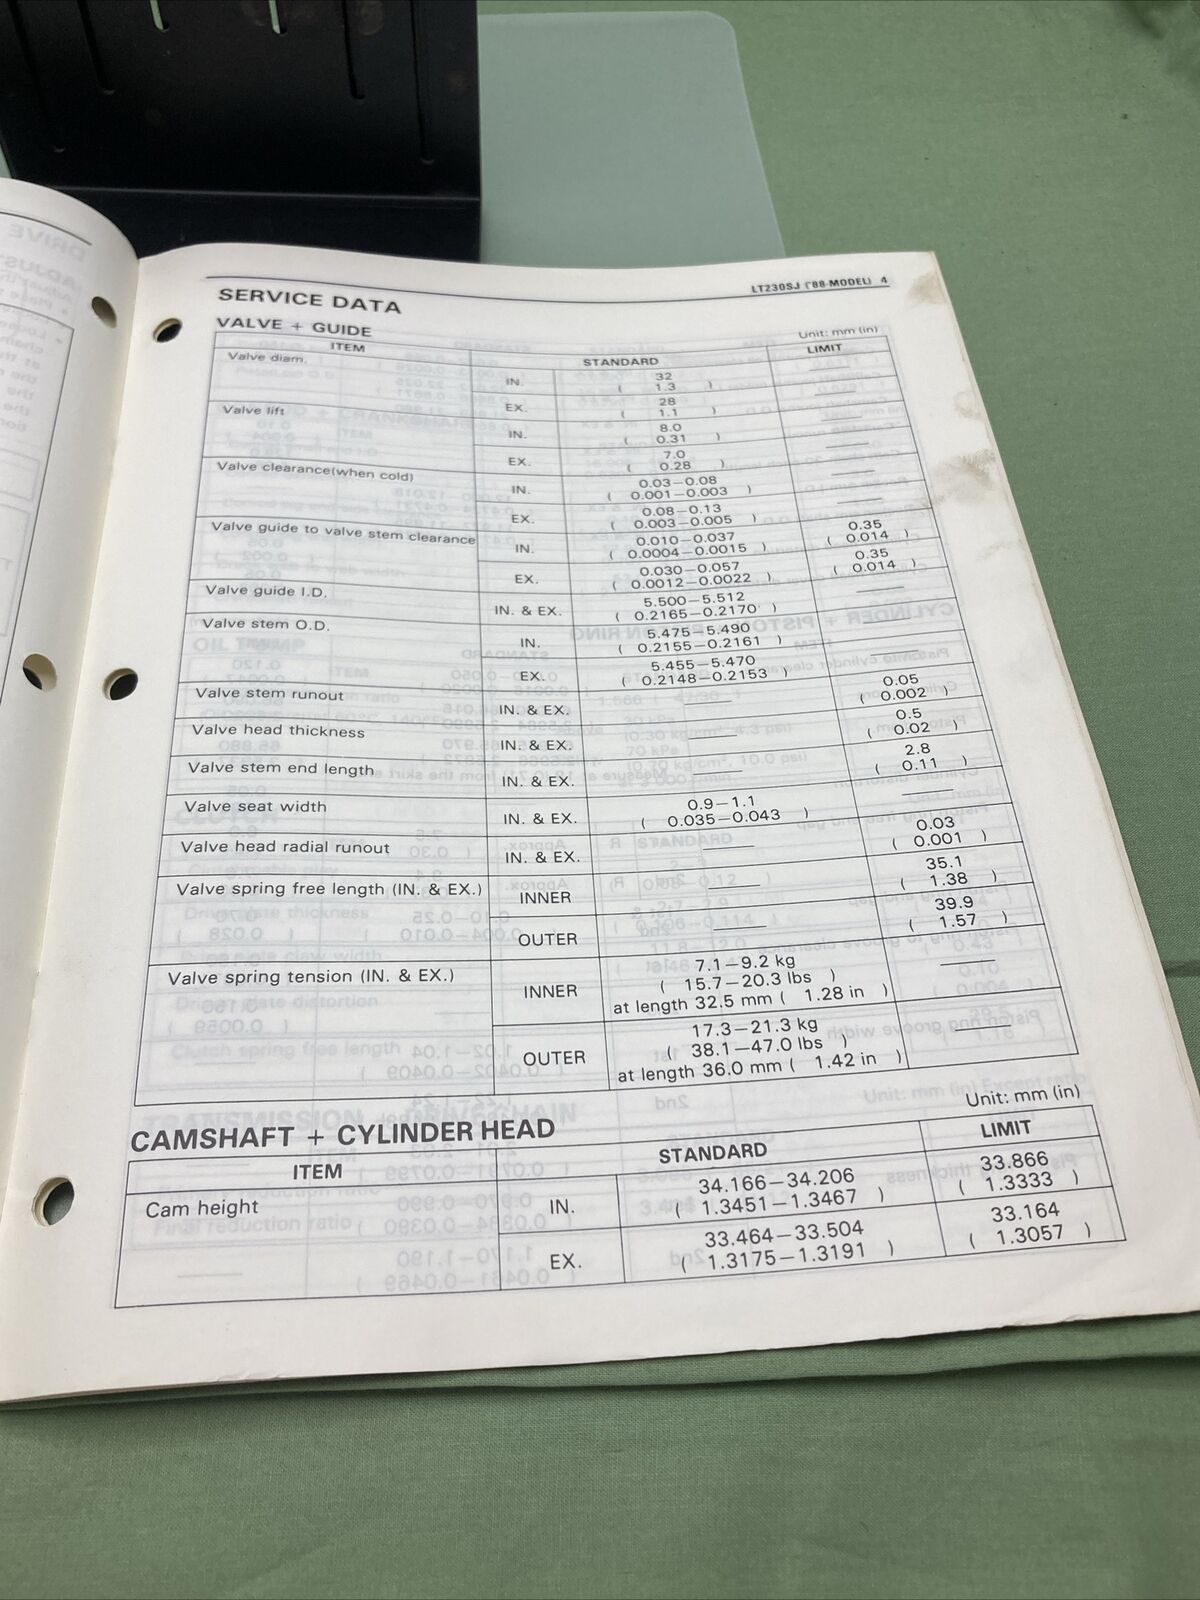 LT230SJ ('88-MODEL) 4
SERVICE DATA
VALVE + GUIDE
Unit: mm (in)
ITEM STANDARD LIMIT
Valve diam. IN. 32
( 1.3 )
EX. 28
( 1.1 )
Valve lift IN. 8.0
( 0.31 )
EX. 7.0
( 0.28 )
Valve clearance(when cold) IN. 0.03–0.08
( 0.001–0.003 )
EX. 0.08–0.13
( 0.003–0.005 )
Valve guide to valve stem clearance IN. 0.010–0.037 0.35
( 0.0004–0.0015 ) ( 0.014 )
EX. 0.030–0.057 0.35
( 0.0012–0.0022 ) ( 0.014 )
Valve guide I.D. IN. & EX. 5.500–5.512
( 0.2165–0.2170 )
Valve stem O.D. IN. 5.475–5.490
( 0.2155–0.2161 )
EX. 5.455–5.470
( 0.2148–0.2153 )
Valve stem runout IN. & EX. 0.05
( 0.002 )
Valve head thickness IN. & EX. 0.5
( 0.02 )
Valve stem end length IN. & EX. 2.8
( 0.11 )
Valve seat width IN. & EX. 0.9–1.1
( 0.035–0.043 )
Valve head radial runout IN. & EX. 0.03
( 0.001 )
Valve spring free length (IN. & EX.) INNER 35.1
( 1.38 )
OUTER 39.9
( 1.57 )
Valve spring tension (IN. & EX.) INNER 7.1–9.2 kg
( 15.7–20.3 lbs )
at length 32.5 mm ( 1.28 in )
OUTER 17.3–21.3 kg
( 38.1–47.0 lbs )
at length 36.0 mm ( 1.42 in )
CAMSHAFT + CYLINDER HEAD
Unit: mm (in)
ITEM STANDARD LIMIT
Cam height IN. 34.166–34.206 33.866
( 1.3451–1.3467 ) ( 1.3333 )
EX. 33.464–33.504 33.164
( 1.3175–1.3191 ) ( 1.3057 )